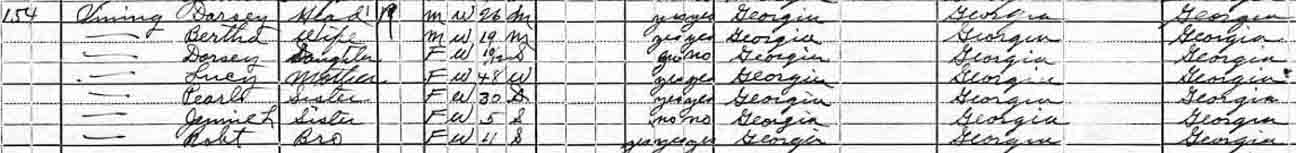 154 Vining Dorsey Head 1 R M W 26 M yes yes Georgia Georgia Georgia
— Bertha Wife M W 19 M yes yes Georgia Georgia Georgia
— Dorsey Daughter F W S no no Georgia Georgia Georgia
— Lucy Mother F W 48 W yes yes Georgia Georgia Georgia
— Pearl Sister F W 30 S yes yes Georgia Georgia Georgia
— Jennie L Sister F W 5 S no no Georgia Georgia Georgia
— Robt Bro F W 11 S yes yes yes Georgia Georgia Georgia